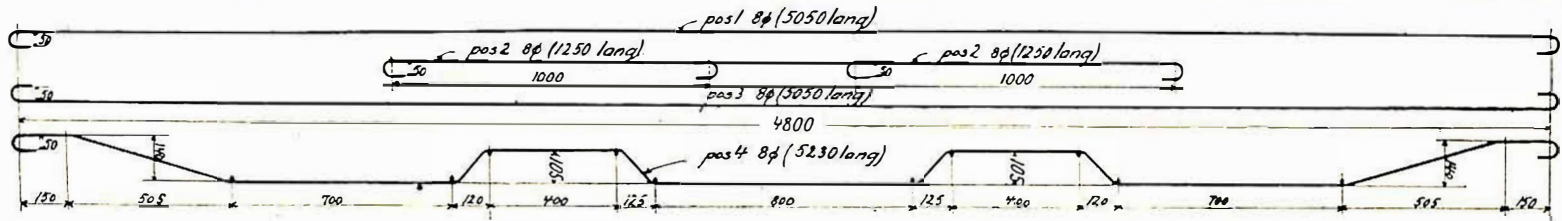 pos1 8ϕ (5050 lang)
50
pos2 8ϕ (1250 lang) pos2 8ϕ (1250 lang)
50 50
1000 1000
50 pos3 8ϕ (5050 lang)
4800
50 140 105 pos4 8ϕ (5230 lang) 105 140
150 505 700 120 400 125 800 125 400 120 700 505 150